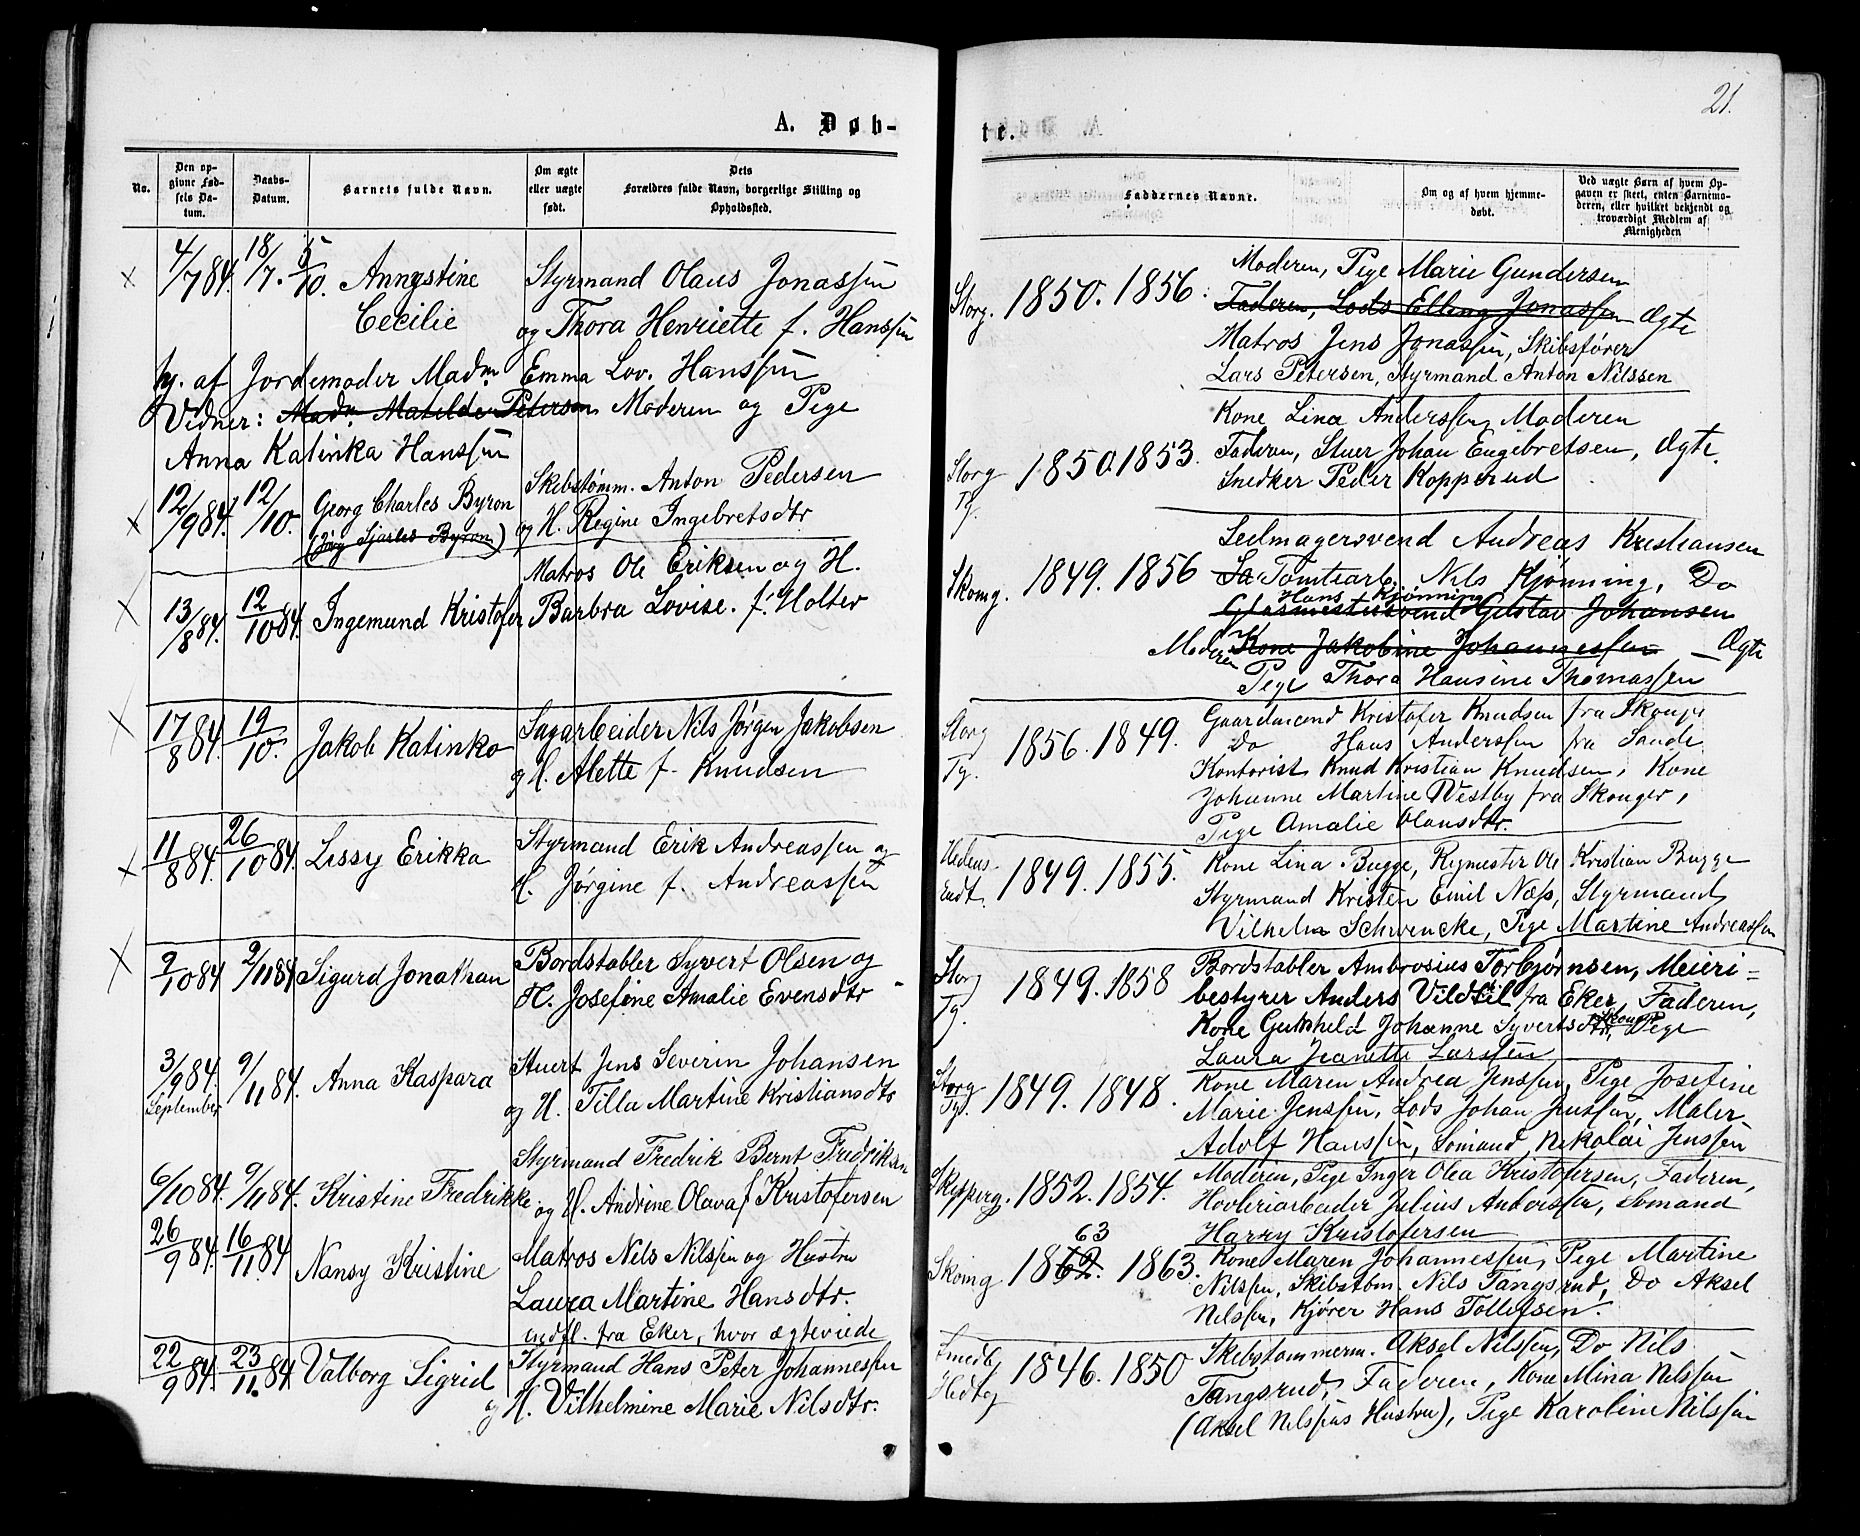 21.
A. Døb-
te.
No.
Den op-
givne Fød-
sels Da-
tum.
Daabs-
Datum.
Barnets fulde Navn.
Om ægte
eller uægte
født.
Dets
Forældres fulde Navn, borgerlige Stilling og
Opholdssted.
Faddernes Navne.
Om og af hvem hjemme-
døbt.
Ved uægte Børn af hvem Op-
gaven er skeet, enten Barnemo-
deren, eller hvilket bekjendt og
troværdigt Medlem af
Menigheden
4/7 84. 18/7. 5/10. Annystine
Cecilie
Styrmand Olaus Jonassen
og Thora Henriette f. Hanssen
hj. af Jordemoder Madm Emma Lov. Hanssen
Vidner: Madm. Matilde Petersen Moderen og Pige
Anna Katinka Hanssen
12/9 84. 12/10. Georg Charles Byron
(Jörg Sjarles Byron)
Skibstømm. Anton Pedersen
og H. Regine Ingebretsdtr
13/8 84. 12/10 84. Ingemund Kristofer
Matros Ole Eriksen og H.
Barbra Lovise. f. Holter
17/8 84. 19/10. Jakob Katinko
Sagarbeider Nils Jørgen Jakobsen
og H. Alette f. Knudsen
11/8 84. 26/10 84. Lissy Erikka
Styrmand Erik Andreassen og
H. Jørgine f. Andreassen
9/10 84 2/11 84 Sigurd Jonathan
Bordstabler Syvert Olsen og
H. Josefine Amalie Evensdtr
3/9 84. 9/11 84. Anna Kaspara
September
Stuert Jens Severin Johansen
og H. Tilla Martine Kristiansdtr
6/10 84. 9/11 84. Kristine Fredrikke
Styrmand Fredrik Bernt Fredriksen
og H. Andrine Olava f Kristofersen
26/9 84. 16/11. 84 Nansy Kristine
Matros Nils Nilssen og Hustru
Laura Martine Hansdtr.
indfl. fra Eker, hvor ægteviede
22/9 84. 23/11. 84 Valborg Sigrid
Styrmand Hans Peter Johannessen
og H. Vilhelmine Marie Nilsdtr.
Storg. 1850. 1856.
Moderen, Pige Marie Gundersen
Faderen, Lods Elling Jonassen Ægte
Matros Jens Jonassen, Skibsfører
Lars Petersen, Styrmand Anton Nilssen
Storg
Tg.
1850 1853.
Kone Lina Anderssen, Moderen
Faderen, Stuer Johan Engebretsen, Ægte.
Snedker Peder Kopperud
Skomg. 1849. 1856
Seilmagersvend Andreas Kristiansen
Sa Tomtearb. Nils Kjønning, Do
Hans Kjønning
Glasmestersvend Gustav Johansen
Moderen Kone Jakobine Johannessen Ægte
Pige Thora Hansine Thomassen
Storg
Tg.
1856. 1849.
Gaardmand Kristofer Knudsen fra Skouger
Do Hans Anderssen fra Sande
Kontorist Knud Kristian Knudsen, Kone
Johanne Martine Westby fra Skouger,
Pige Amalie Olausdtr.
1849. 1855.
Kone Lina Bugge, Ole Kristian Bugge
Styrmand Kristen Emil Næss, Styrmand
Vilhelm Schwencke, Pige Martine Andreassen
Storg
Tg.
1849. 1858
Bordstabler Ambrosius Torbjørnsen, Meieri=
bestyrer Anders Vildtil fra Eker, Faderen,
Kone Gunhild Johanne Syvertsdtr, Skouger Pige
Laura Jeanette Larssen
Storg
Tg.
1849. 1848.
Kone Maren Andrea Jenssen, Pige Josefine
Marie Jenssen, Lods Johan Jenssen, Maler
Adolf Hanssen, Sømand Nikolai Jenssen
Skipperg. 1852. 1854.
Moderen, Pige Inger Olea Kristofersen, Faderen,
Høvleriarbeider Julius Anderssen, Sømand
Harry Kristofersen
Skomg
63
1862. 1863.
Kone Maren Johannessen, Pige Martine
Nilssen, Skibstøm. Nils Tangsrud, Do Aksel
Nilssen, Kjører Hans Tollefsen.
1846. 1850
Skibstømmerm. Aksel Nilssen, Do Nils
Tangsrud, Faderen, Kone Mina Nilssen
(Aksel Nilssens Hustru), Pige Karoline Nilssen